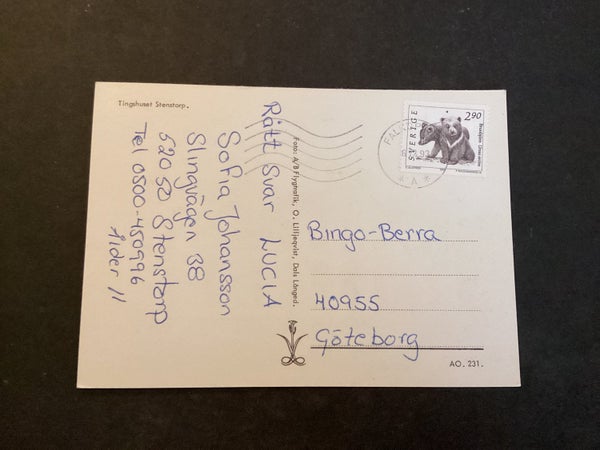 Tingshuset Stenstorp.
Rätt Svar LUCIA
Sofia Johansson
Slingvägen 38
520 50 Stenstorp
Tel 0500-450996
Ålder 11
Foto: A/B Flygtrafik, O. Lilljeqvist, Dals Långed.
SVERIGE
2.90
FAL
93
* A *
Bingo-Berra
40955
Göteborg
AO. 231.